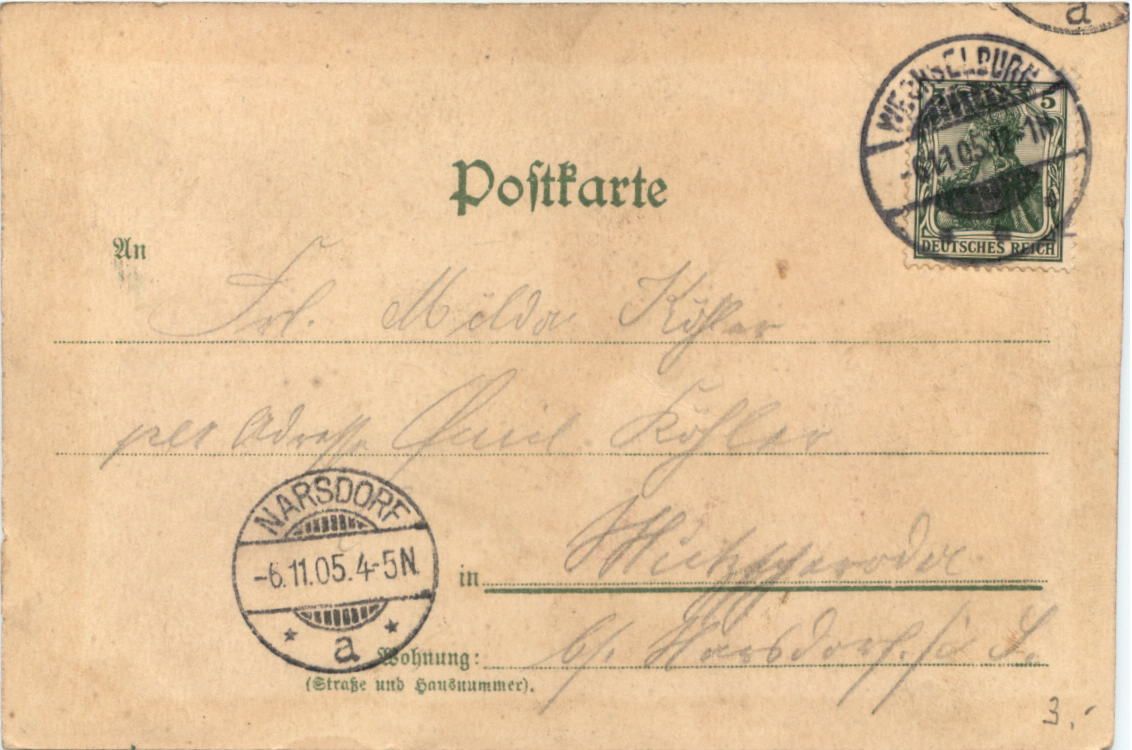 a
WECHSELBURG
-6.11.05.12-1N
5
DEUTSCHES REICH
Postkarte
An
Frl. Milda Köhler
per Adresse Emil Köhler
NARSDORF
-6.11.05.4-5N.
a
in
b/. Narsdorf. i/S.
Wohnung:
(Straße und Hausnummer).
3.-